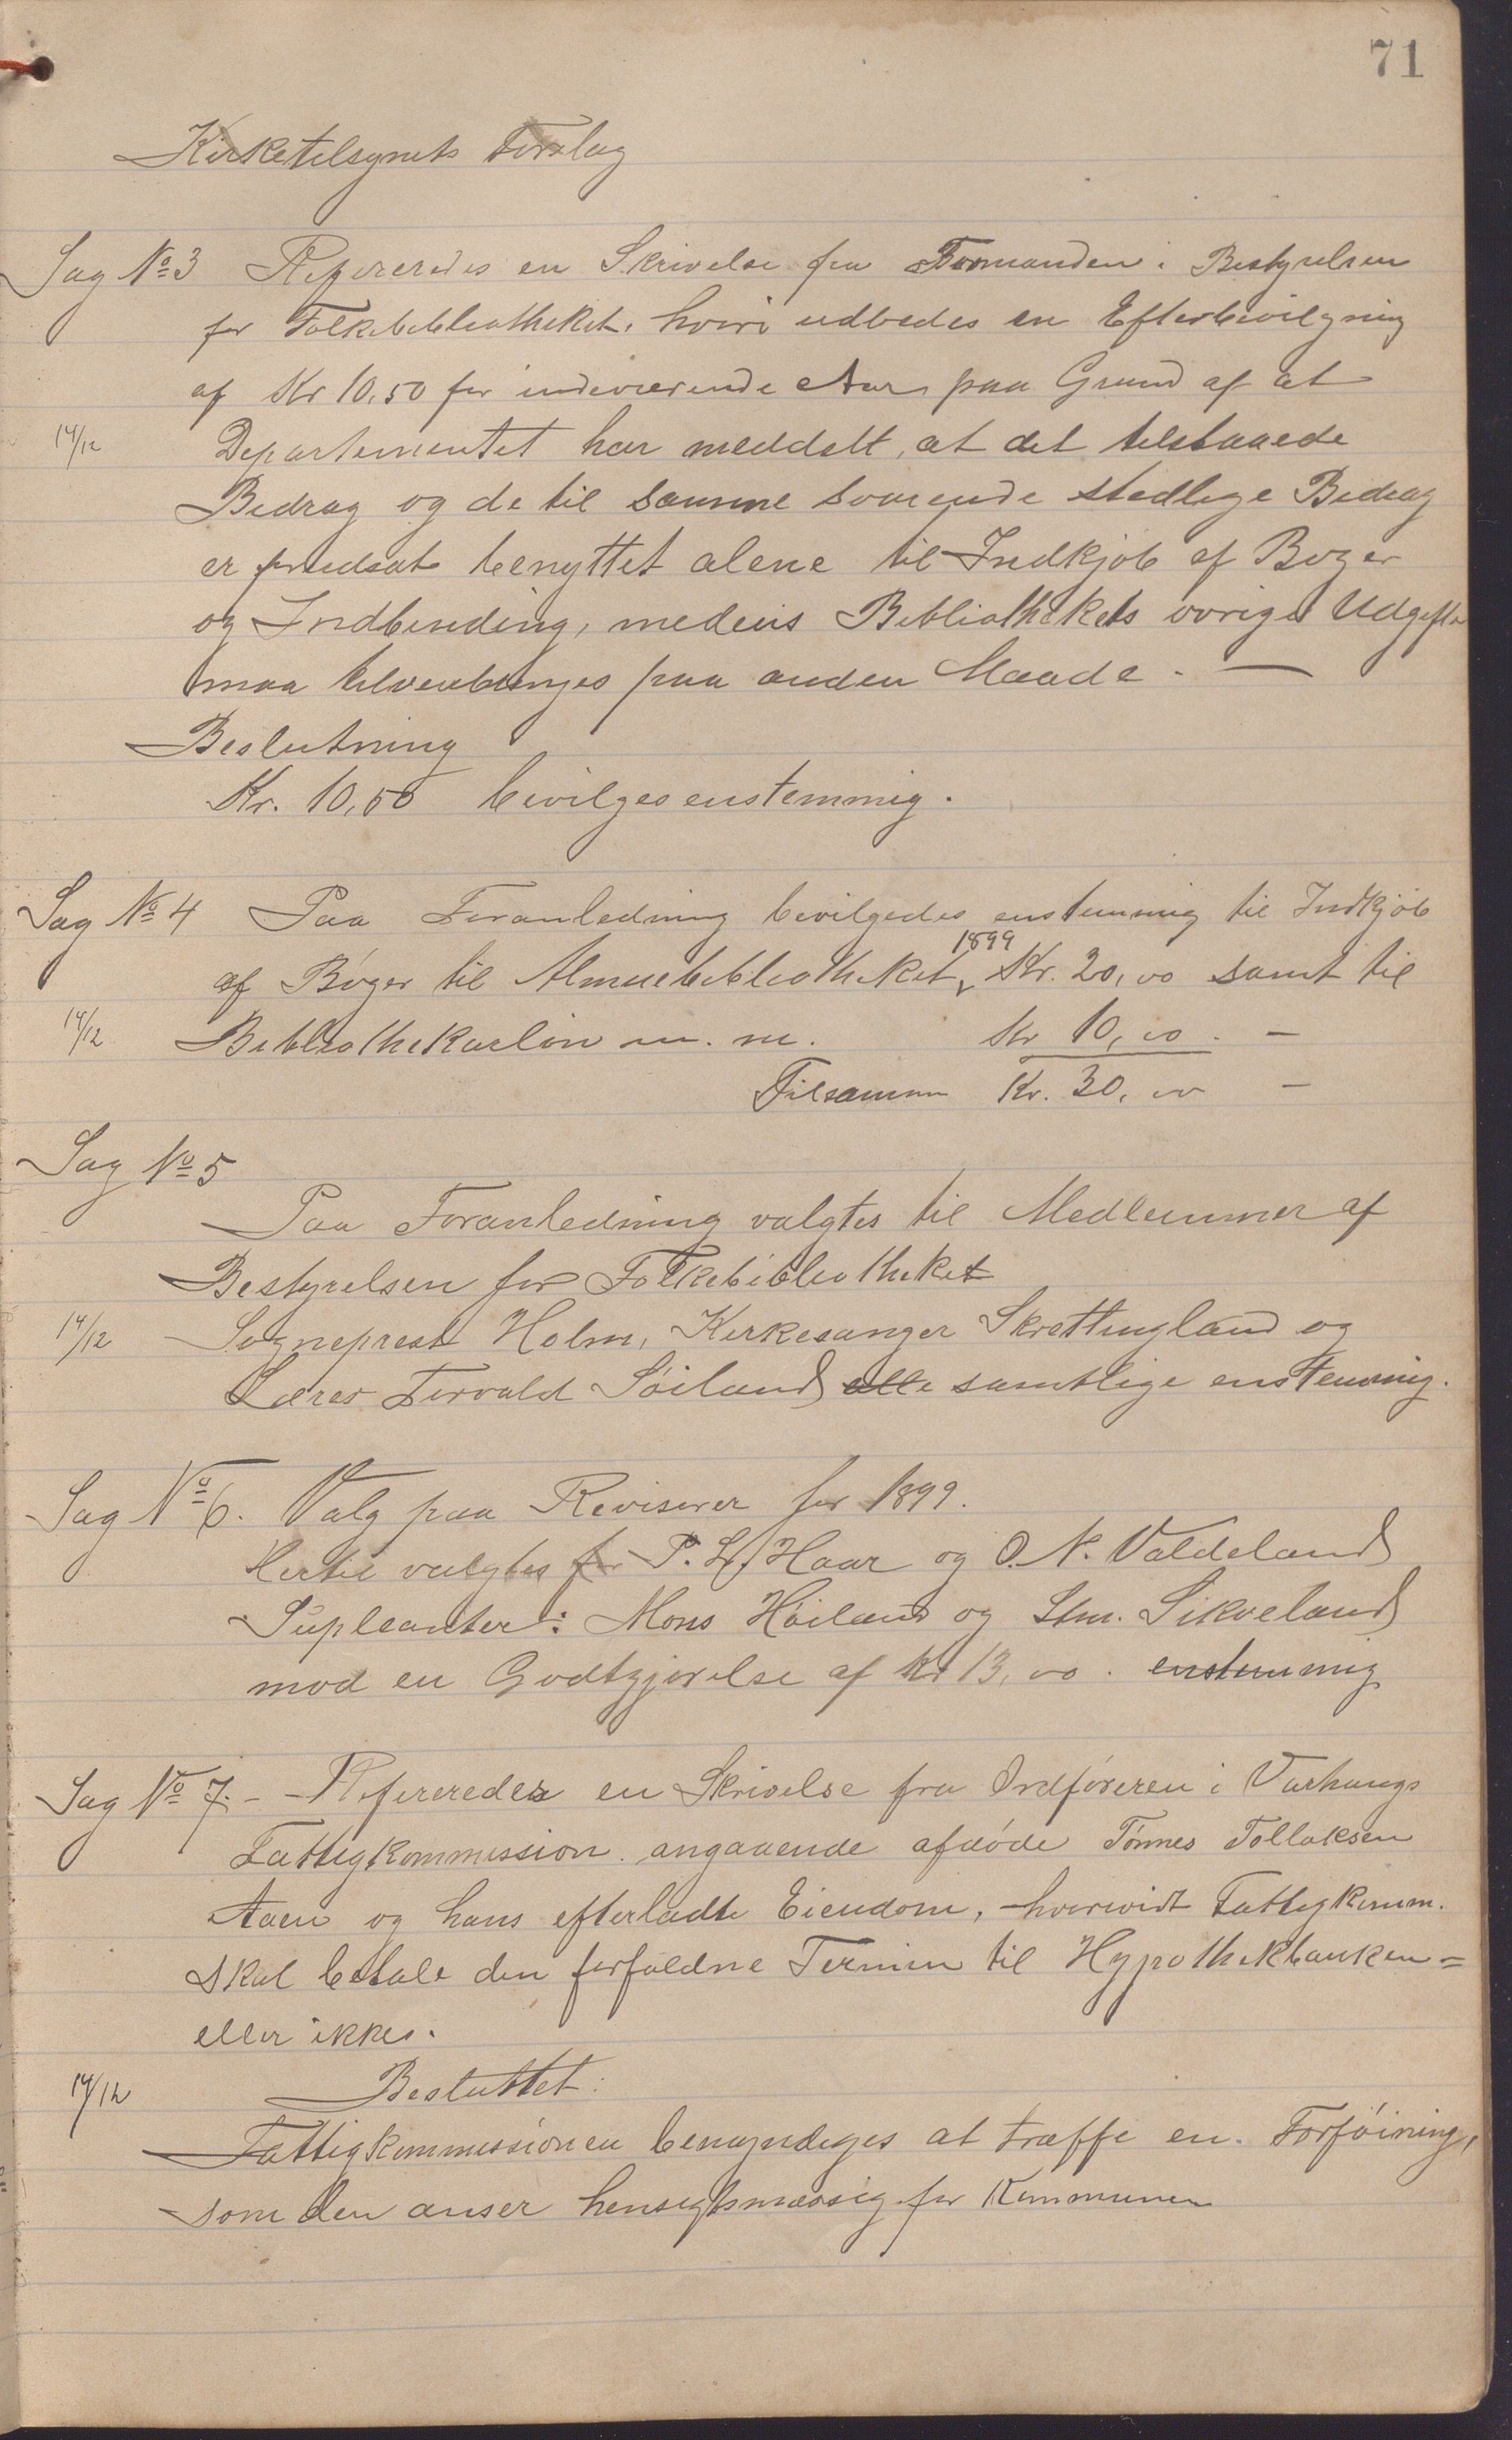 71
Kirketilsynets Forslag
Sag No 3 Refereredes en Skrivelse fra Formanden i Bestyrelsen
for Folkebibliotheket, hvori udbedes en Efterbevilgning
af Kr 10,50 for indeværende Aar paa Grund af at
14/12 Departementet har meddelt, at det tilstaaede
Bidrag og de til samme svarende stedlige Bidrag
er forudsat benyttet alene til Indkjøb af Bøger
og Indbinding, medens Bibliothekets øvrige Udgifter
maa tilveiebringes paa anden Maade. —
Beslutning
Kr. 10,50 bevilges enstemmig.
Sag No 4 Paa Foranledning bevilgedes enstemmig til Indkjøb
af Bøger til Almuebibliotheket 1899 Kr. 20,00 samt til
14/12 Bibliothekarløn m. m. Kr 10,00. —
Tilsammen Kr. 30,00 —
Sag No 5
Paa Foranledning valgtes til Medlemmer af
Bestyrelsen for Folkebibliotheket
14/12 Sogneprest Holm, Kirkesanger Skrettingland og
Lærer Torvald Søiland alle samtlige enstemmig.
Sag No 6. Valg paa Revisorer for 1899.
Hertil valgtes for P. L. Haar og O. N. Valdeland
Supleanter: Mons Høiland og Sim. Sikveland
mod en Godtgjørelse af Kr 13,00. enstemmig
Sag No 7. - - Refereredes en Skrivelse fra Ordføreren i Varhaugs
Fattigkommission angaaende afdøde Tønnes Tollaksen
Aaen og hans efterladte Eiendom, hvorvidt Fattigkomm.
skal betale den forfaldne Termin til Hypothekbanken =
eller ikke.
14/12 Besluttet:
Fattigkommissionen bemyndiges at træffe en Forføining,
som den anser hensigtsmæssig for Kommunen